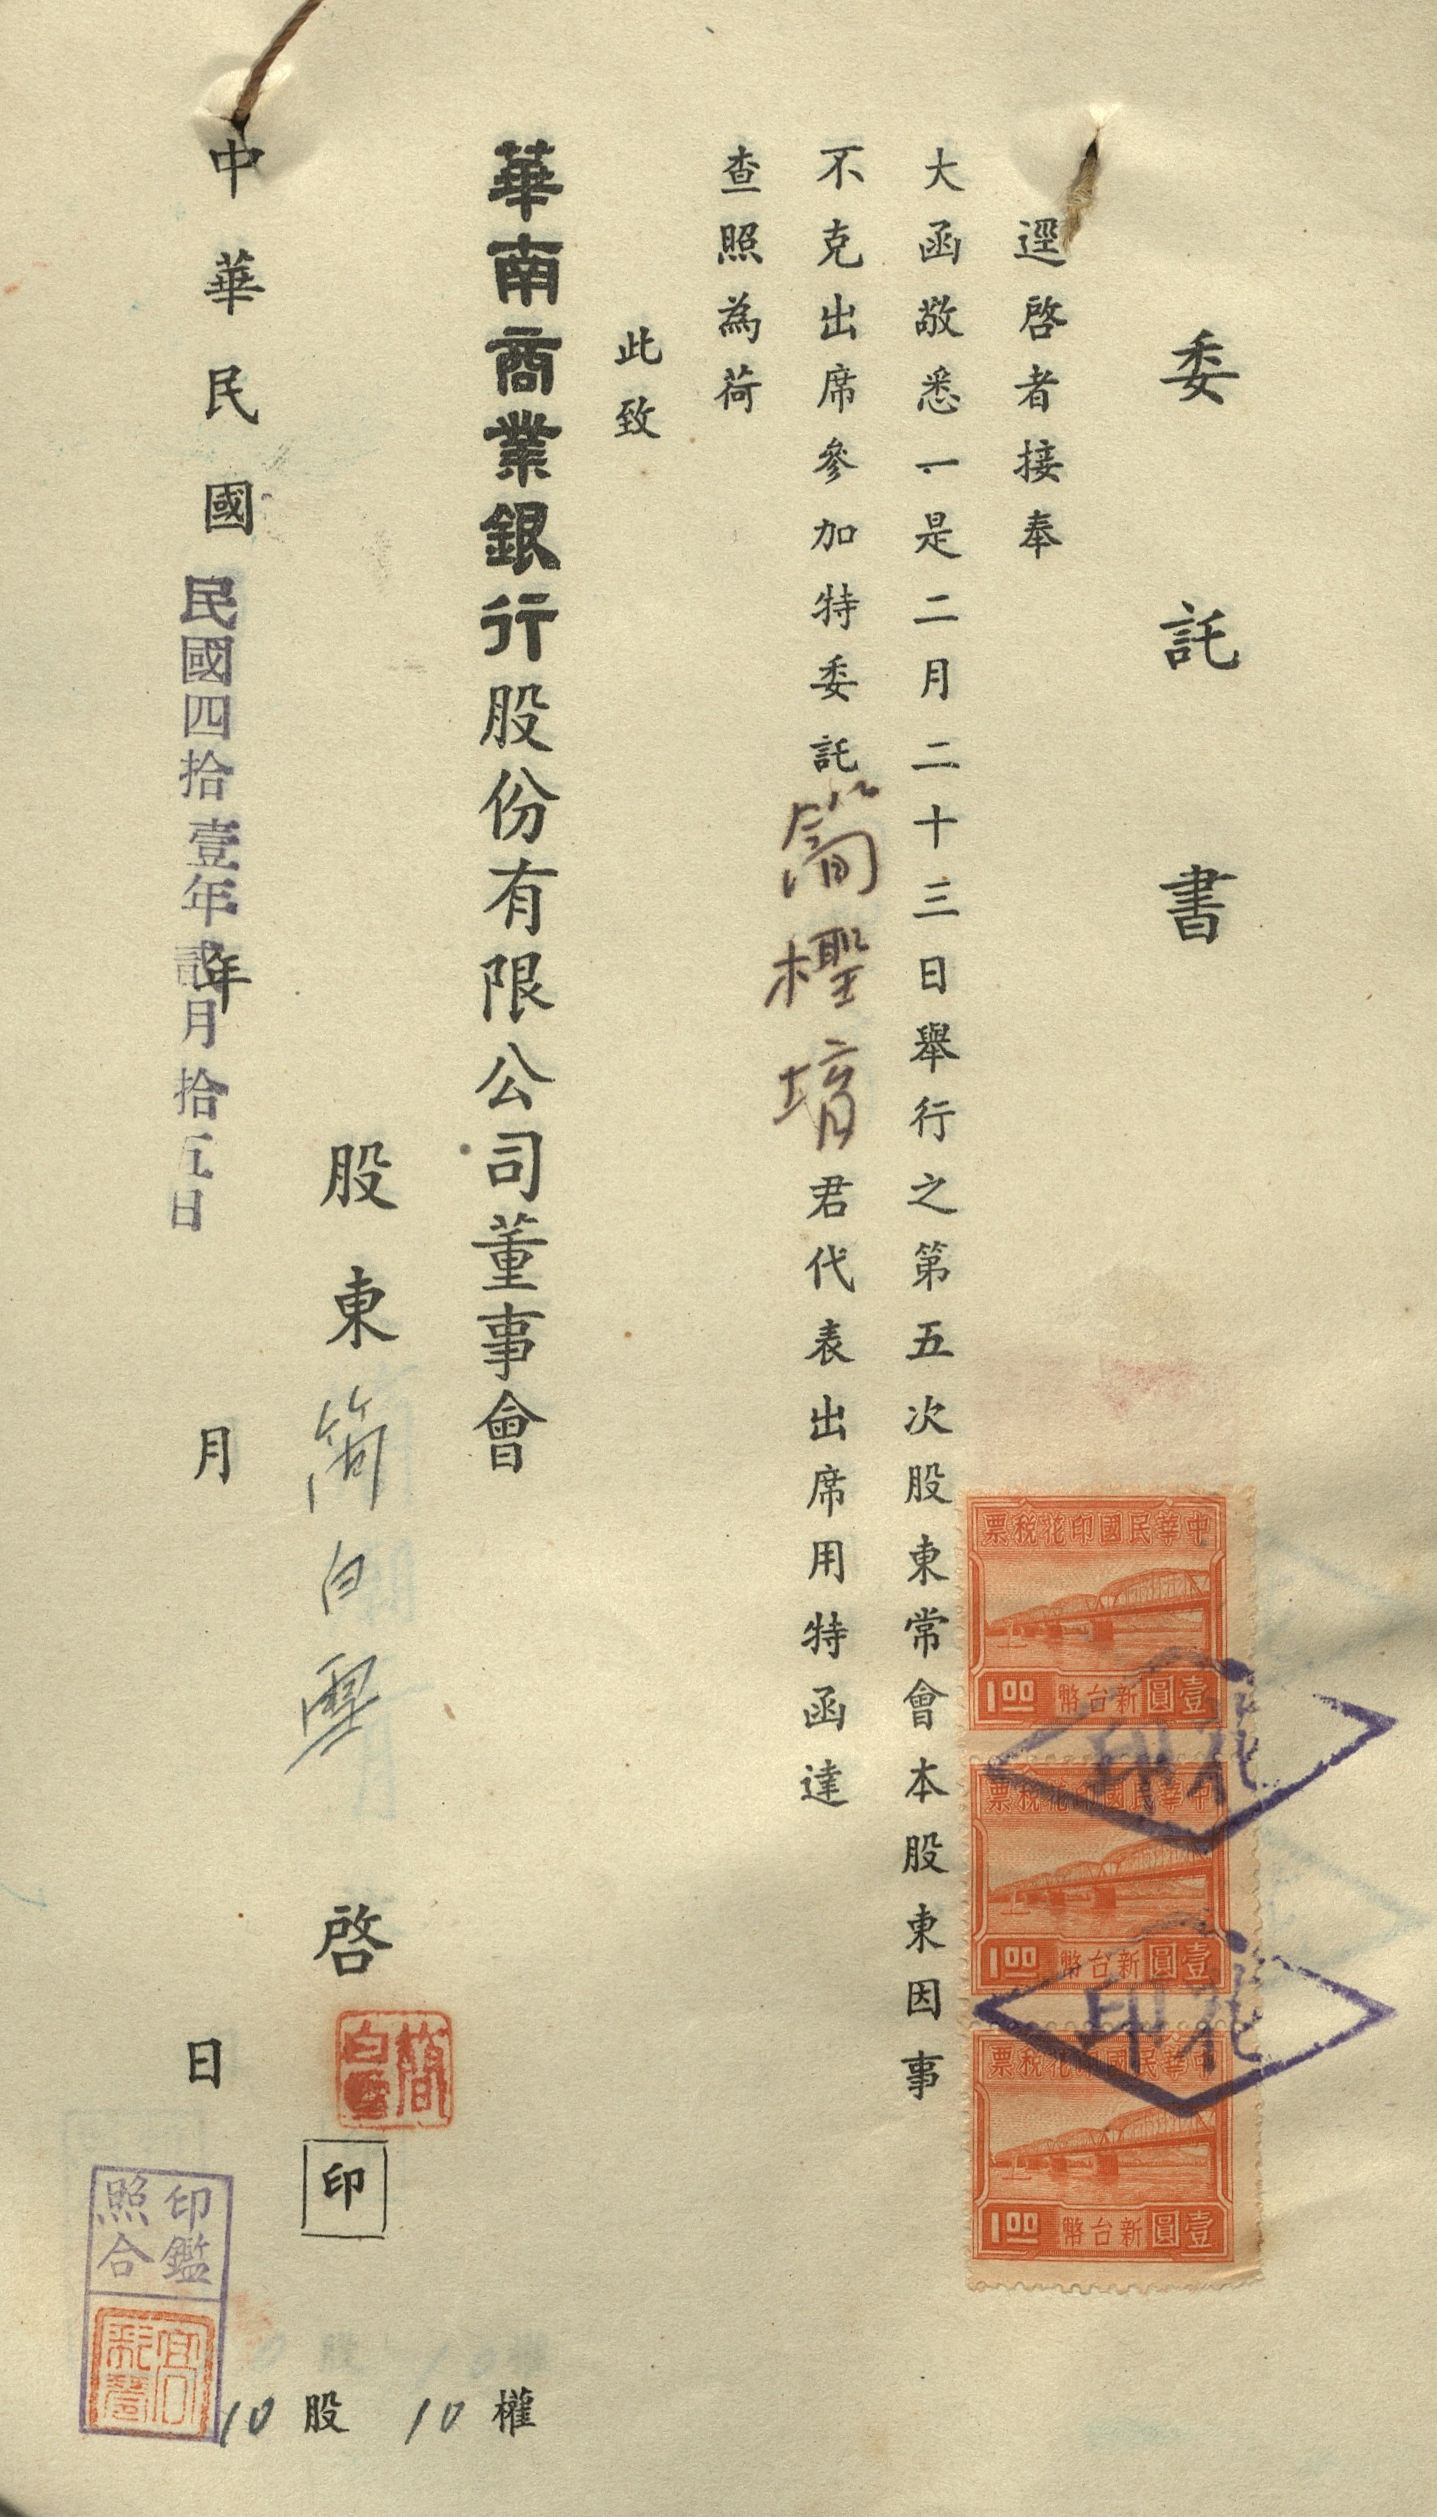 委託書
逕啓者接奉
大函敬悉一是二月二十三日舉行之第五次股東常會本股東因事
不克出席參加特委託簡檉堉君代表出席用特函達
查照為荷
此致
華南商業銀行股份有限公司董事會
股東簡白雪啓
簡白雪
印
中華民國年月日
民國四拾壹年貳月拾五日
10股10權
印鑑
照合
中華民國印花稅票
壹圓新台幣
1.00
中華民國印花稅票
壹圓新台幣
1.00
中華民國印花稅票
壹圓新台幣
1.00
花印
花印